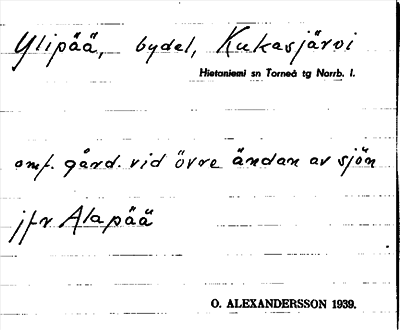 Ylipää, bydel, Kukasjärvi
Hietaniemi sn Torneå tg Norrb. l.
omf. gård. vid övre ändan av sjön
jfr Alapää
O. ALEXANDERSSON 1939.